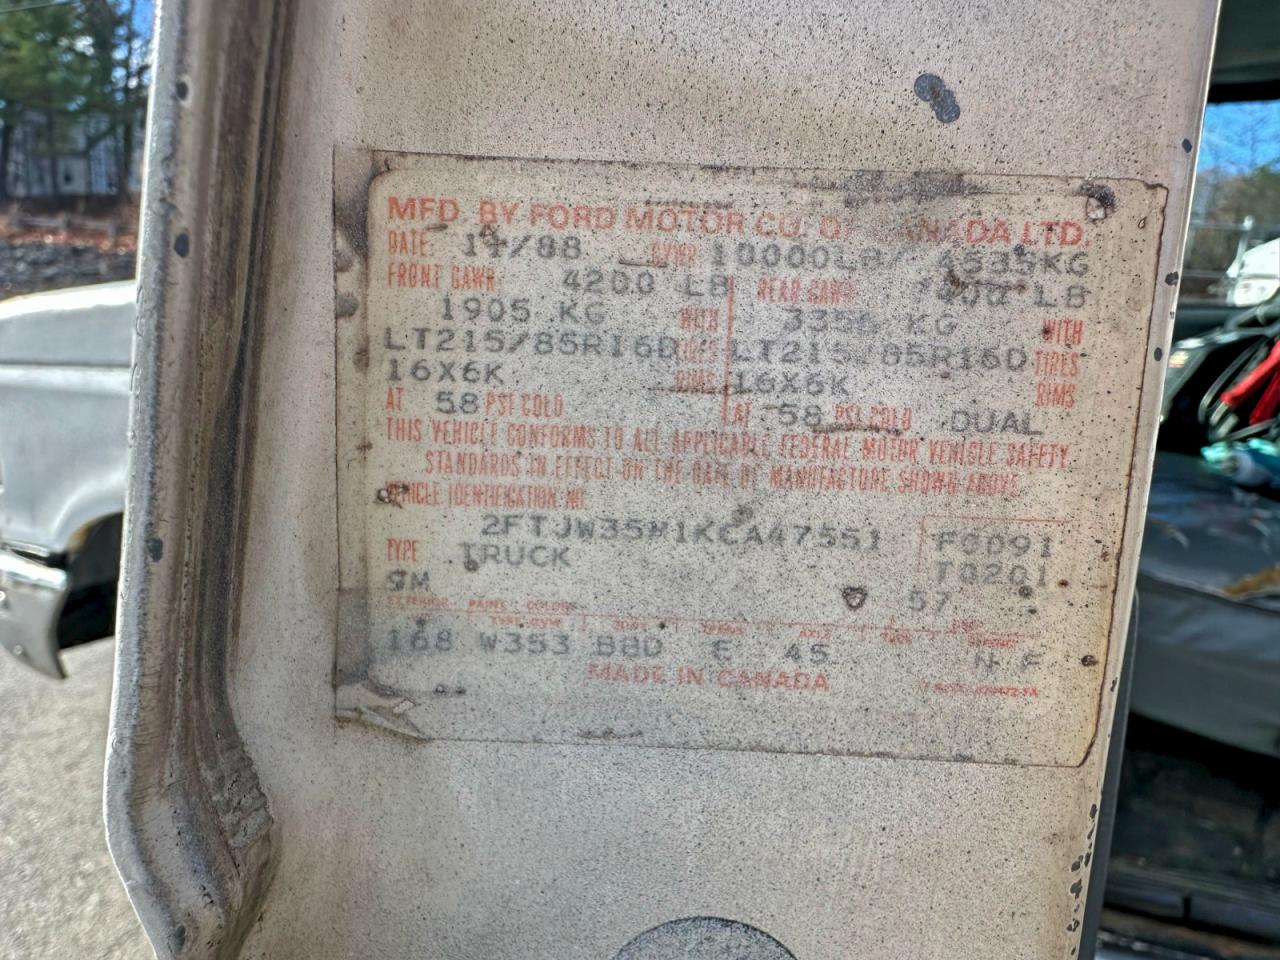 MFD. BY FORD MOTOR CO. OF CANADA LTD.
DATE: 11/88 GVWR 10000LB/ 4535KG
FRONT GAWR 4200 LB REAR GAWR 7400 LB
1905 KG WITH 3356 KG WITH
LT215/85R16D TIRES LT215/85R16D TIRES
16X6K RIMS 16X6K RIMS
AT 58 PSI COLD AT 58 PSI COLD DUAL
THIS VEHICLE CONFORMS TO ALL APPLICABLE FEDERAL MOTOR VEHICLE SAFETY
STANDARDS IN EFFECT ON THE DATE OF MANUFACTURE SHOWN ABOVE
VEHICLE IDENTIFICATION NO.
2FTJW35M1KCA47551 F0091
TYPE TRUCK T0201
9M 57
EXTERIOR PAINT COLORS
168 W353 BBD E 45 N F
MADE IN CANADA